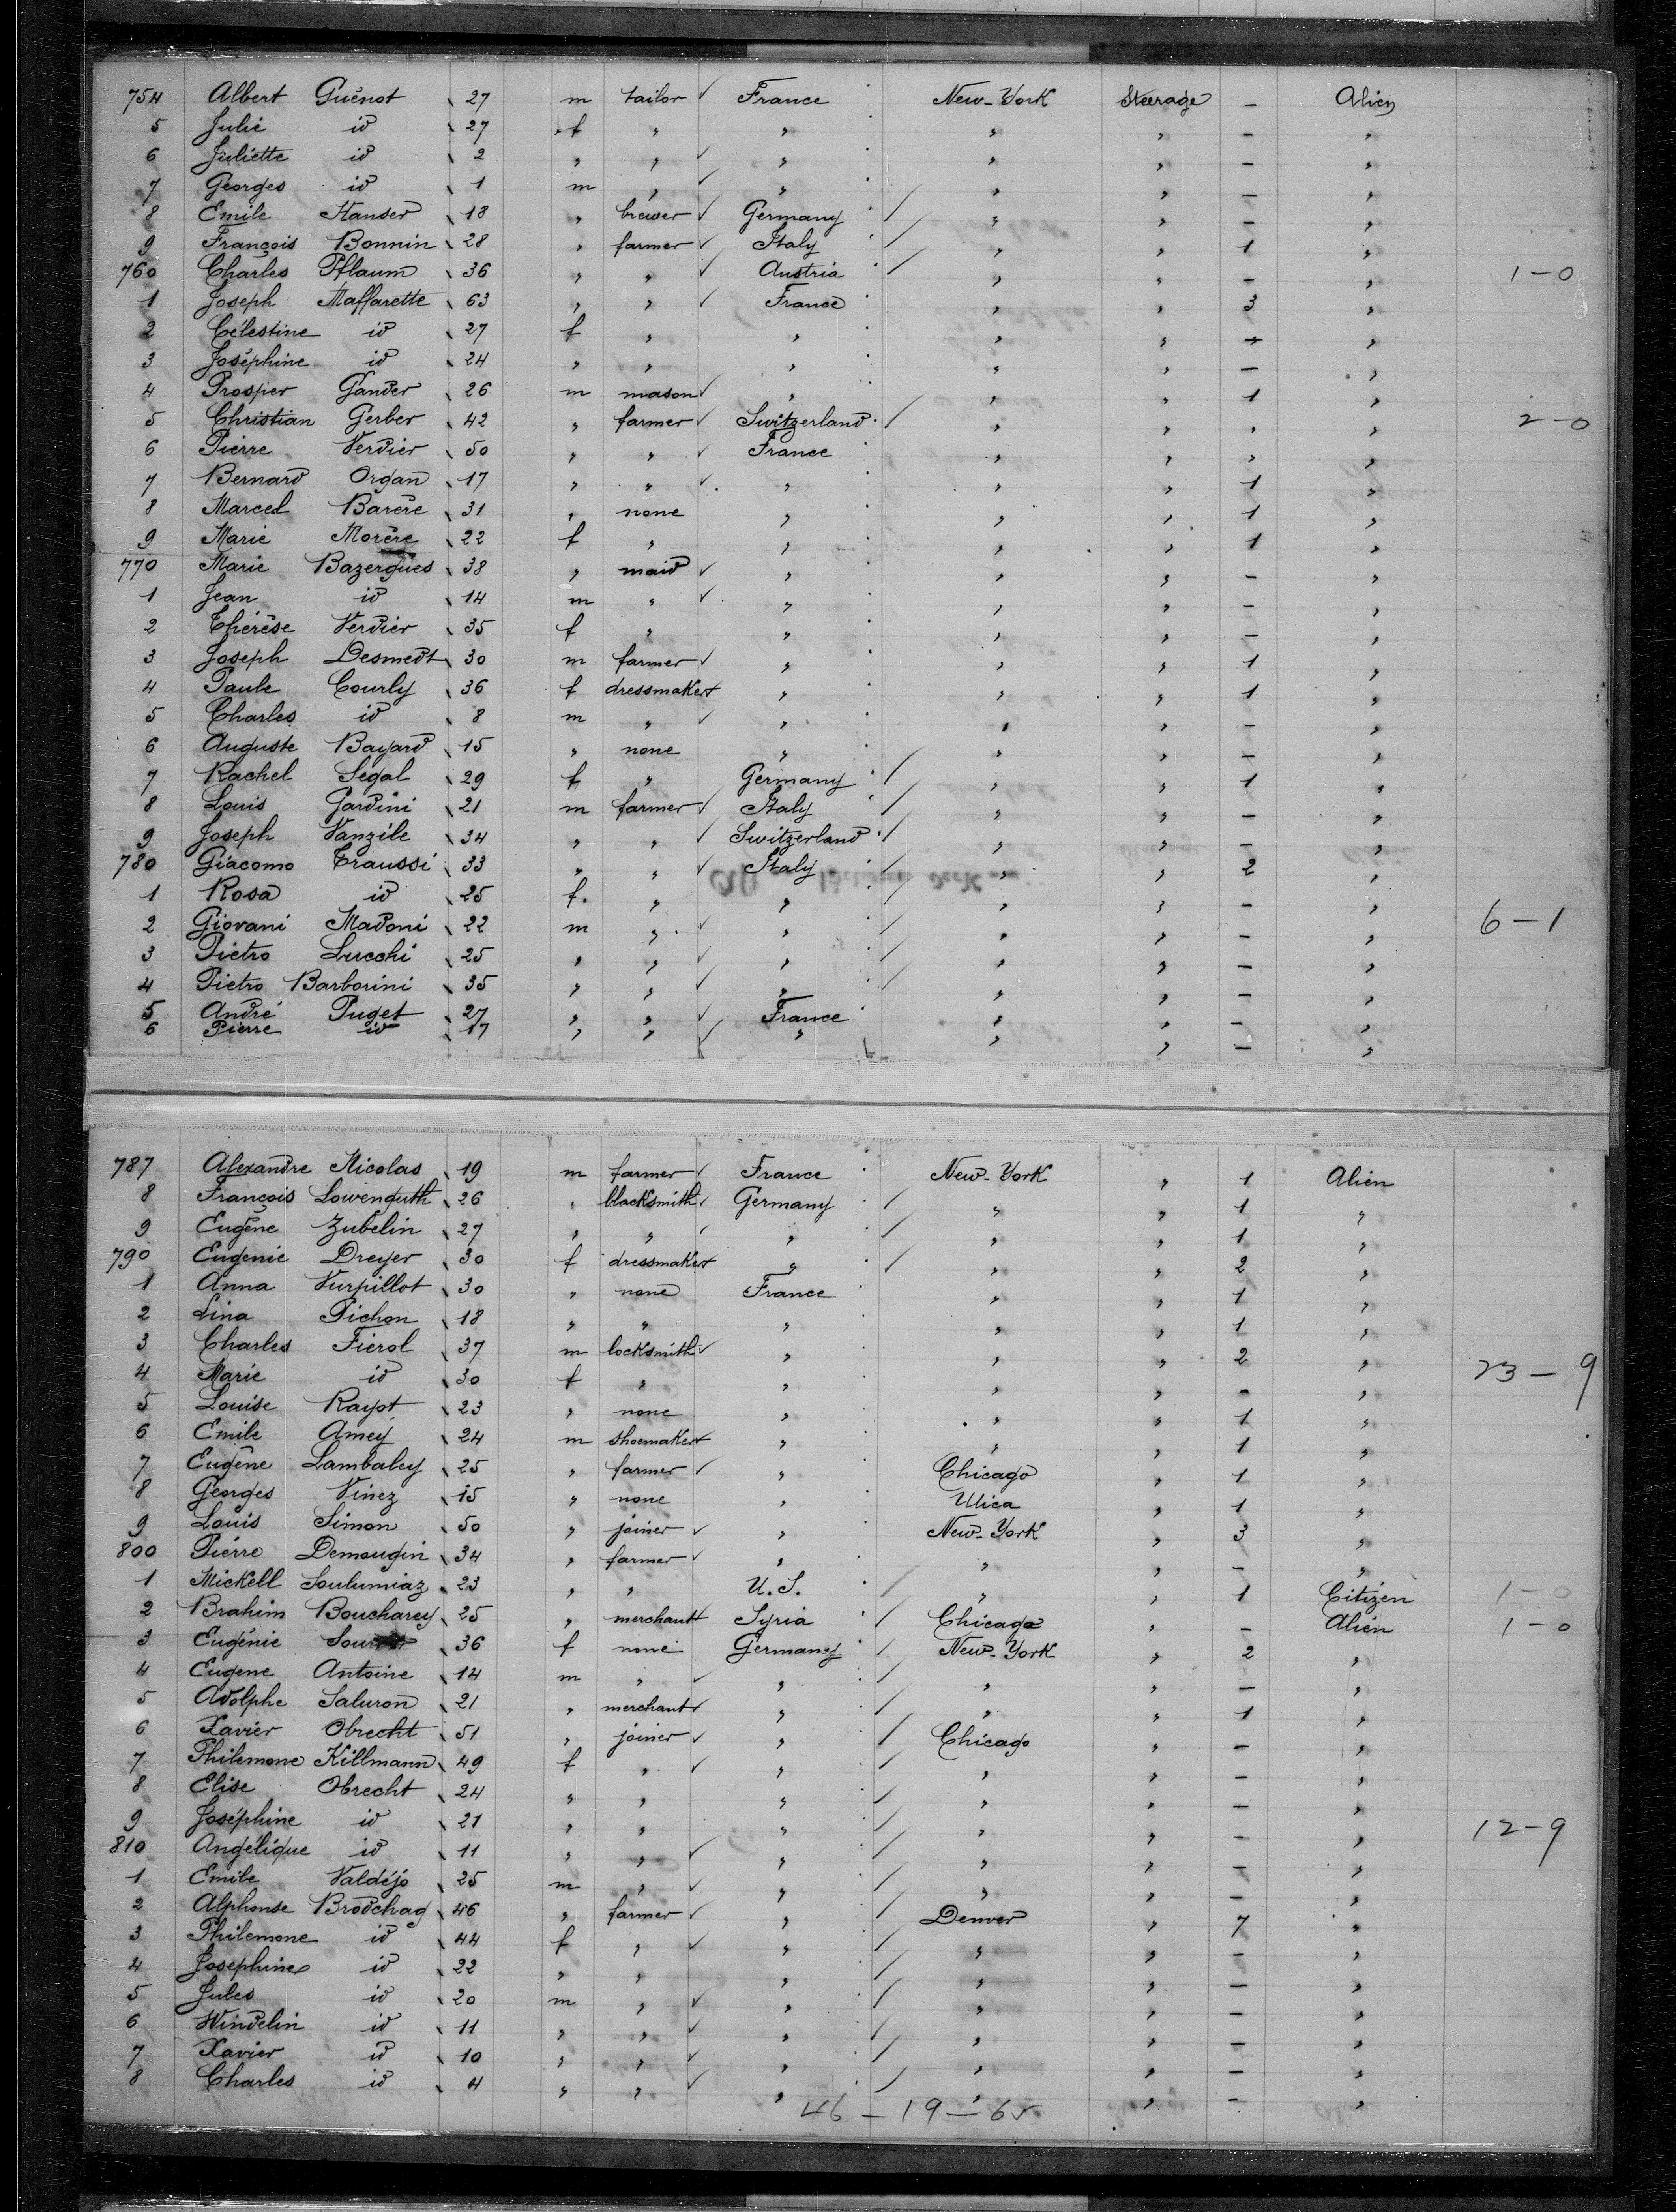 754 Albert Guénot 27 m tailor ✓ France New-York Steerage - Alien
5 Julie id 27 f " " " " - "
6 Juliette id 2 " " ✓ " " " - "
7 Georges id 1 m " ✓ " " " - "
8 Emile Hanser 18 " brewer ✓ Germany / " " - "
9 François Bonnin 28 " farmer ✓ Italy / " " 1 "
760 Charles Pflaum 36 " " ✓ Austria / " " - " 1-0
1 Joseph Maffarette 63 " " ✓ France " " 3 "
2 Célestine id 27 f " " " " - "
3 Joséphine id 24 " " " " " - "
4 Prosper Gander 26 m mason ✓ " " " 1 "
5 Christian Gerber 42 " farmer ✓ Switzerland / " " " " 2-0
6 Pierre Verdier 50 " " ✓ France " " " "
7 Bernard Organ 17 " " ✓ " " " 1 "
8 Marcel Barère 31 " none " " " 1 "
9 Marie Morère 22 f " " " " 1 "
770 Marie Bazergues 38 " maid ✓ " " " - "
1 Jean id 14 m " ✓ " " " - "
2 Thérèse Verdier 35 f " " " " - "
3 Joseph Desmedt 30 m farmer ✓ " " " 1 "
4 Paule Courly 36 f dressmaker ✓ " " " 1 "
5 Charles id 8 m " ✓ " " " - "
6 Auguste Bayard 15 " none " " " - "
7 Rachel Segal 29 f " Germany / " " 1 "
8 Louis Jardini 21 m farmer ✓ Italy / " " - "
9 Joseph Vanzile 34 " " ✓ Switzerland / " " - "
780 Giacomo Traussi 33 " " ✓ Italy / " " 2 "
1 Rosa id 25 f. " " / " " - "
2 Giovani Madoni 22 m " ✓ " / " " - " 6-1
3 Pietro Lucchi 25 " " ✓ " / " " - "
4 Pietro Barborini 35 " " ✓ " / " " - "
5 André Puget 27 " " ✓ France " " - "
6 Pierre id 17 " " ✓ " " " - "
787 Alexandre Nicolas 19 m farmer ✓ France New-York " 1 Alien
8 François Lowenguth 26 " blacksmith ✓ Germany / " " 1 "
9 Eugène Zubelin 27 " " ✓ " / " " 1 "
790 Eugenie Dreyer 30 f dressmaker ✓ " / " " 2 "
1 Anna Vurpillot 30 " none France " " 1 "
2 Lina Pichon 18 " " " " " 1 "
3 Charles Fierol 37 m locksmith ✓ " " " 2 "
4 Marie id 30 f " " " " - " 23-9
5 Louise Rayot 23 " none " " " 1 "
6 Emile Amey 24 m shoemaker ✓ " " " 1 "
7 Eugène Lambaley 25 " farmer ✓ " Chicago " 1 "
8 Georges Vinez 15 " none " Utica " 1 "
9 Louis Simon 50 " joiner ✓ " New-York " 3 "
800 Pierre Demougin 34 " farmer ✓ " " " - "
1 Mickell Soulumiaz 23 " " U.S. / " " 1 Citizen 1-0
2 Brahim Boucharey 25 " merchant ✓ Syria / Chicago " - Alien 1-0
3 Eugénie 36 f none Germany / New-York " 2 "
4 Eugene Antoine 14 m " ✓ " / " " - "
5 Adolphe Saluron 21 " merchant ✓ " / " " 1 "
6 Xavier Obrecht 51 " joiner ✓ " / Chicago " - "
7 Philemone Killmann 49 f " ✓ " / " " - "
8 Elise Obrecht 24 " " " / " " - "
9 Joséphine id 21 " " " / " " - " 12-9
810 Angélique id 11 " " ✓ " / " " - "
1 Emile Valdéjo 25 m " ✓ " / " " - "
2 Alphonse Brodchag 46 " farmer ✓ " / Denver " 7 "
3 Philemone id 44 f " ✓ " / " " - "
4 Josephine id 22 " " " / " " - "
5 Jules id 20 m " ✓ " / " " - "
6 Windelin id 11 " " ✓ " / " " - "
7 Xavier id 10 " " ✓ " / " " - "
8 Charles id 4 " " ✓ " / " " - "
46-19-65